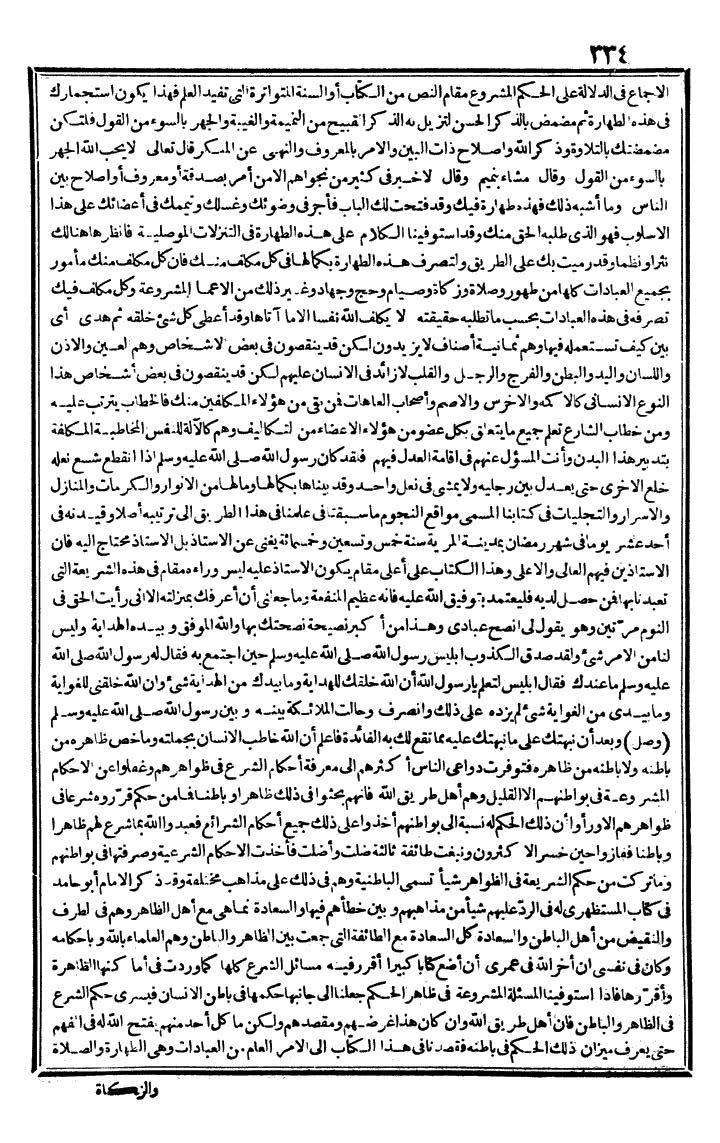 ٣٣٤
الاجماع فى الدلالة على الحكم المشروع مقام النص من الكتاب أو السنة المتواترة التى تفيد العلم فهذا يكون استجمارك
فى هذه الطهارة ثم مضمض بالذكر الحسن لتزيل به الذكر القبيح من النميمة والغيبة والجهر بالسوء من القول فلتكن
مضمضتك بالتلاوة وذكر الله واصلاح ذات البين والامر بالمعروف والنهى عن المنكر قال تعالى لا يحب الله الجهر
بالسوء من القول وقال مشاء بنميم وقال لاخير فى كثير من نجواهم الا من أمر بصدقة أو معروف أو اصلاح بين
الناس وما أشبه ذلك فهذه طهارة فيك وقد فتحت لك الباب فأجر فى وضوئك وغسلك وتيممك فى أعضائك على هذا
الاسلوب فهو الذى طلبه الحق منك وقد استوفينا الكلام على هذه الطهارة فى التنزلات الموصلية فانظرها هنالك
نثرا ونظما وقد رميت بك على الطريق ولتصرف هذه الطهارة بكمالها فى كل مكلف منك فان كل مكلف منك مأمور
بجميع العبادات كلها من طهور وصلاة وزكاة وصيام وحج وجهاد وغير ذلك من الاعمال المشروعة وكل مكلف فيك
تصرفه فى هذه العبادات بحسب ما تطلبه حقيقته لا يكلف الله نفسا الا ما آتاها وقد أعطى كل شئ خلقه ثم هدى أى
بين كيف تستعمله فيها وهم ثمانية أصناف لا يزيدون لكن قد ينقصون فى بعض الاشخاص وهم العين والاذن
واللسان واليد والبطن والفرج والرجل والقلب لا زائد فى الانسان عليهم لكن قد ينقصون فى بعض أشخاص هذا
النوع الانسانى كالاكمه والاخرس والاصم وأصحاب العاهات فمن بقى من هؤلاء المكلفين منك فالخطاب يترتب عليه
ومن خطاب الشارع تعلم جميع ما يتعلق بكل عضو من هؤلاء الاعضاء من التكاليف وهم كالآلة للنفس المخاطبة المكلفة
بتدبير هذا البدن وأنت المسؤل عنهم فى اقامة العدل فيهم فلقد كان رسول الله صلى الله عليه وسلم اذا انقطع شسع نعله
خلع الاخرى حتى يعدل بين رجليه ولا يمشى فى نعل واحد وقد بيناها بكمالها وما لها من الانوار والكرامات والمنازل
والاسرار والتجليات فى كتابنا المسمى مواقع النجوم ما سبقنا فى علمنا فى هذا الطريق الى ترتيبه أصلا وقيدته فى
أحد عشر يوما فى شهر رمضان بمدينة المرية سنة خمس وتسعين وخمسمائة يغنى عن الاستاذ بل الاستاذ محتاج اليه فان
الاستاذين فيهم العالى والاعلى وهذا الكتاب على أعلى مقام يكون الاستاذ عليه ليس وراءه مقام فى هذه الشريعة التى
تعبدنا بها فمن حصل لديه فليعتمد بتوفيق الله عليه فانه عظيم المنفعة وما جعلنى أن أعرفك بمنزلته الا انى رأيت الحق فى
النوم مرتين وهو يقول لى انصح عبادى وهذا من أكبر نصيحة نصحتك بها والله الموفق وبيده الهداية وليس
لنا من الامر شئ ولقد صدق الكذوب ابليس رسول الله صلى الله عليه وسلم حين اجتمع به فقال له رسول الله صلى الله
عليه وسلم ما عندك فقال ابليس لتعلم يا رسول الله أن الله خلقك للهداية وما بيدك من الهداية شئ وان الله خلقنى للغواية
وما بيدى من الغواية شئ لم يزده على ذلك وانصرف وحالت الملائكة بينه وبين رسول الله صلى الله عليه وسلم
(وصل) وبعد أن نبهتك على ما نبهتك عليه مما تقع لك به الفائدة فاعلم أن الله خاطب الانسان بجملته وما خص ظاهره من
باطنه ولا باطنه من ظاهره فتوفرت دواعى الناس أكثرهم الى معرفة أحكام الشرع فى ظواهرهم وغفلوا عن الاحكام
المشروعة فى بواطنهم الا القليل وهم أهل طريق الله فانهم بحثوا فى ذلك ظاهرا وباطنا فما من حكم قرروه شرعا فى
ظواهرهم الا ورأوا أن ذلك الحكم له نسبة الى بواطنهم أخذوا على ذلك جميع أحكام الشرائع فعبدوا الله بما شرع لهم ظاهرا
وباطنا ففازوا حين خسر الاكثرون ونبغت طائفة ثالثة ضلت وأضلت فأخذت الاحكام الشرعية وصرفتها فى بواطنهم
وما تركت من حكم الشريعة فى الظواهر شيأ تسمى الباطنية وهم فى ذلك على مذاهب مختلفة وقد ذكر الامام أبو حامد
فى كتاب المستظهرى له فى الرد عليهم شيأ من مذاهبهم وبين خطأهم فيها والسعادة انما هى مع أهل الظاهر وهم فى الطرف
والنقيض من أهل الباطن والسعادة كل السعادة مع الطائفة التى جمعت بين الظاهر والباطن وهم العلماء بالله وباحكامه
وكان فى نفسى ان أخر الله فى عمرى أن أضع كتابا كبيرا أقرر فيه مسائل الشرع كلها كما وردت فى أماكنها الظاهرة
وأقررها فاذا استوفينا المسئلة المشروعة فى ظاهر الحكم جعلنا الى جانبها حكمها فى باطن الانسان فيسرى حكم الشرع
فى الظاهر والباطن فان أهل طريق الله وان كان هذا غرضهم ومقصدهم ولكن ما كل أحد منهم يفتح الله له فى الفهم
حتى يعرف ميزان ذلك الحكم فى باطنه فقصدنا فى هذا الكتاب الى الامر العام من العبادات وهى الطهارة والصلاة
والزكاة